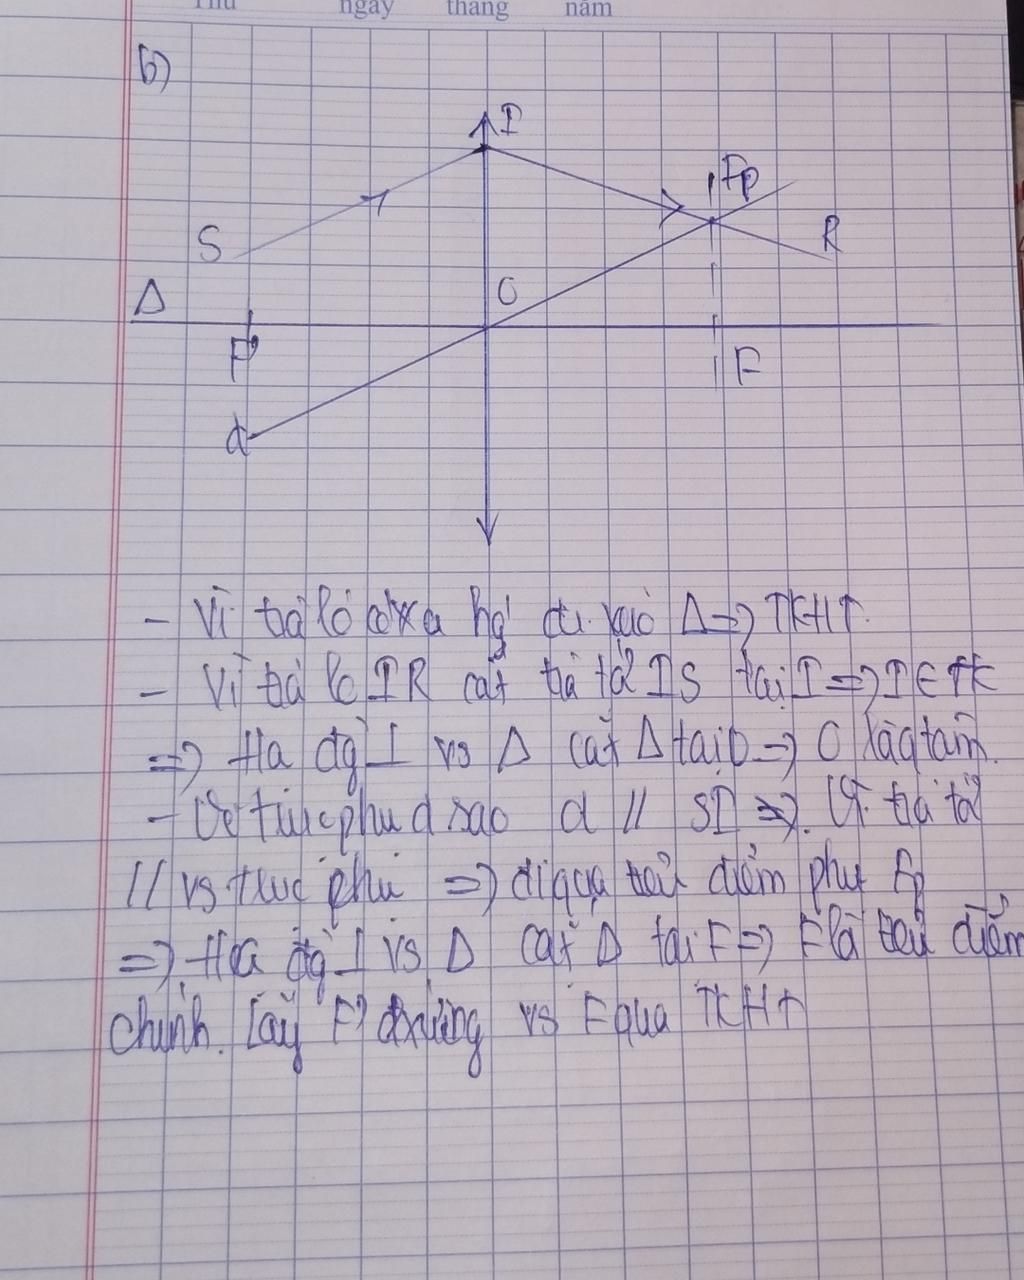 Thứ ngày tháng năm
b)
I
Fp
S
R
Δ
O
F'
F
d
- Vì tia ló có xa hg đi vào Δ => TKHT.
- Vì tia ló IR cắt tia tới IS tại I => I ∈ TK
=> Hạ đg ⊥ vs Δ cắt Δ tại O => O là qtâm.
- Vẽ trục phụ d sao d // SI =>. Vì tia tới
// vs trục phụ => đi qua tiêu điểm phụ Fp
=> Hạ đg ⊥ vs Δ cắt Δ tại F => F là tiêu điểm
chính. Lấy F' đxứng vs F qua TKHT